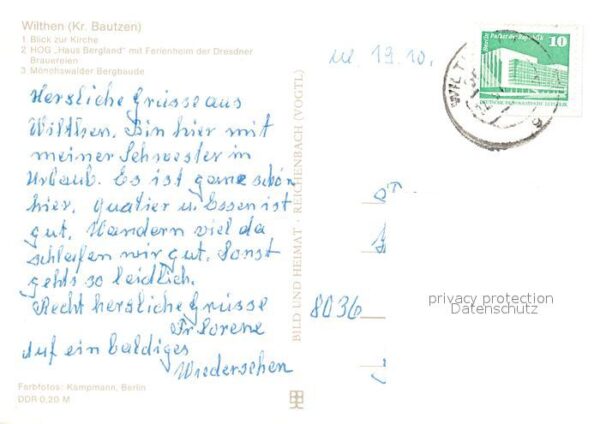 Wilthen (Kr. Bautzen)
1 Blick zur Kirche
2 HOG „Haus Bergland" mit Ferienheim der Dresdner
Brauereien
3 Mönchswalder Bergbaude
Herzliche Grüsse aus
Wilthen. Bin hier mit
meiner Schwester in
Urlaub. Es ist ganz schön
hier. Quatier u. Essen ist
gut. Wandern viel da
schlafen wir gut. Sonst
gehts so leidlich.
Recht herzliche Grüsse
Fr Lorenz
auf ein baldiges
Wiedersehen
Farbfotos: Kampmann, Berlin
DDR 0,20 M
BILD UND HEIMAT · REICHENBACH (VOGTL)
19.10.
Berlin Palast der Republik
10
DEUTSCHE DEMOKRATISCHE REPUBLIK
WILT
8036
privacy protection
Datenschutz